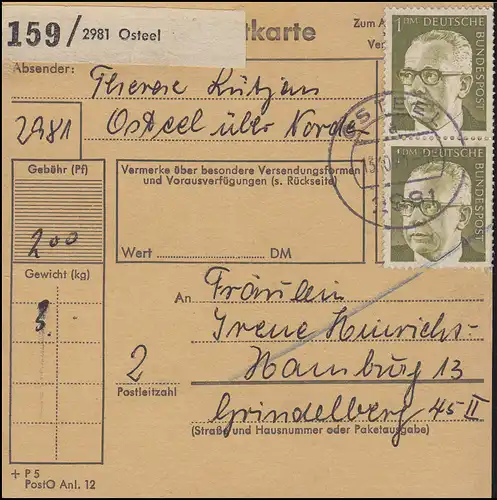 159/ 2981 Osteel
tkarte
Zum A
Ve
Absender: Therese Lütjen
2981
Osteel über Norden
1 DM DEUTSCHE BUNDESPOST
1 DM DEUTSCHE BUNDESPOST
OSTEEL
a
2981
Gebühr (Pf)
200
Vermerke über besondere Versendungsformen
und Vorausverfügungen (s. Rückseite)
Wert DM
Gewicht (kg)
3.
An Fräulein
Irene Heinrichs-
2 Hamburg 13
Postleitzahl
Grindelberg 45 II
(Straße und Hausnummer oder Paketausgabe)
+ P 5
PostO Anl. 12